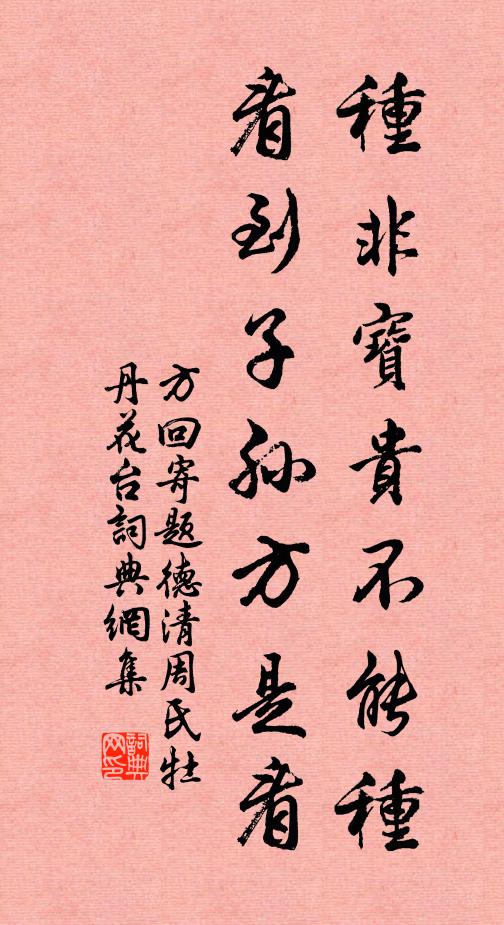 種非寶貴不能種
看到子孙方是看
方回寄題德清周民牡
丹花台詞典網集
詞典
网印